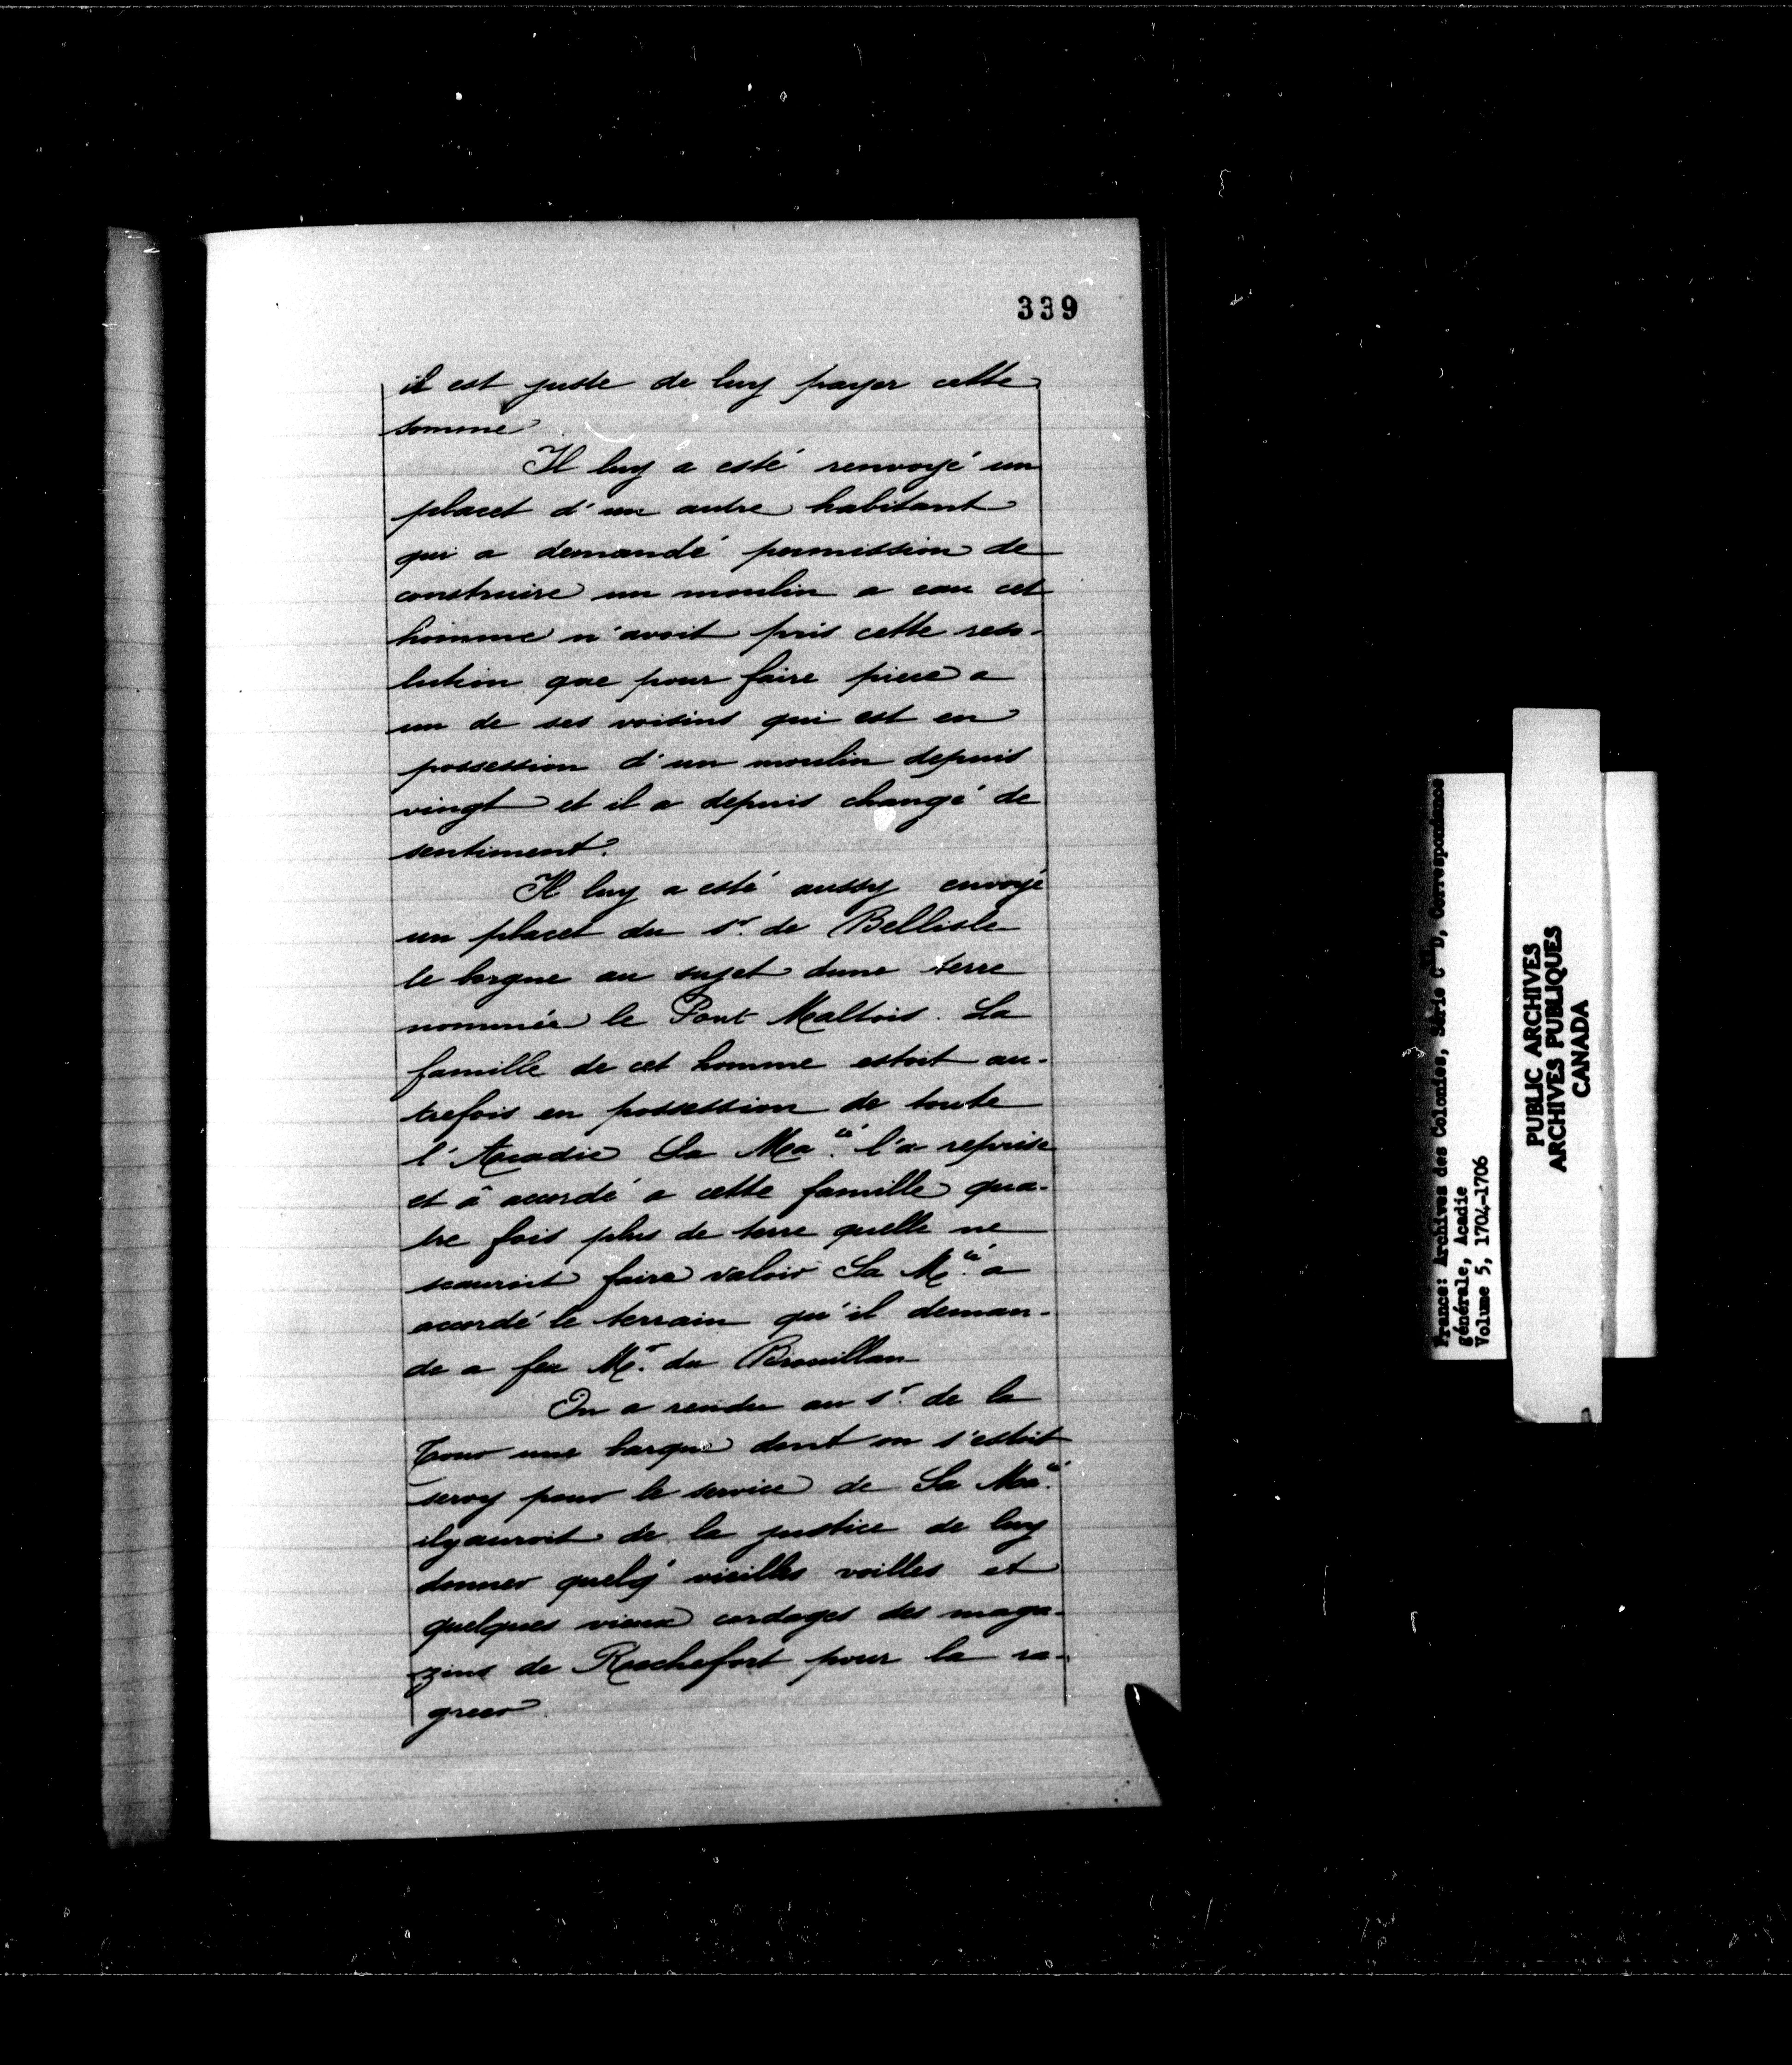 339
il est juste de luy payer cette
somme
Il luy a esté renvoyé un
placet d'un autre habitant
qui a demandé permission de
construire un moulin a eau cet
homme n'avoit pris cette reso-
lution que pour faire piece a
un de ses voisins qui est en
possession d'un moulin depuis
vingt et il a depuis changé de
sentiment.
Il luy a esté aussy envoyé
un placet du sr. de Bellisle
le borgne au sujet dune terre
nommée le Pont Maltois. La
famille de cet homme estoit au-
trefois en possession de toute
l'Acadie Sa Ma.té l'a reprise
et à accordé a cette famille qua-
tre fois plus de terre quelle ne
scauroit faire valoir Sa M.té a
accordé le terrain qu'il deman-
de a feu Mr. du Brouillan
On a rendu au sr. de la
Tour une barque dont on s'estoit
servy pour le service de Sa Ma.té
ilyauroit de la justice de luy
donner quelq' vieilles voilles et
quelques vieux cordages des maga-
zins de Roochefort pour la ra-
greer
France: Archives des Colonies, Série C11D, Correspondance
générale, Acadie
Volume 5, 1704-1706
PUBLIC ARCHIVES
ARCHIVES PUBLIQUES
CANADA